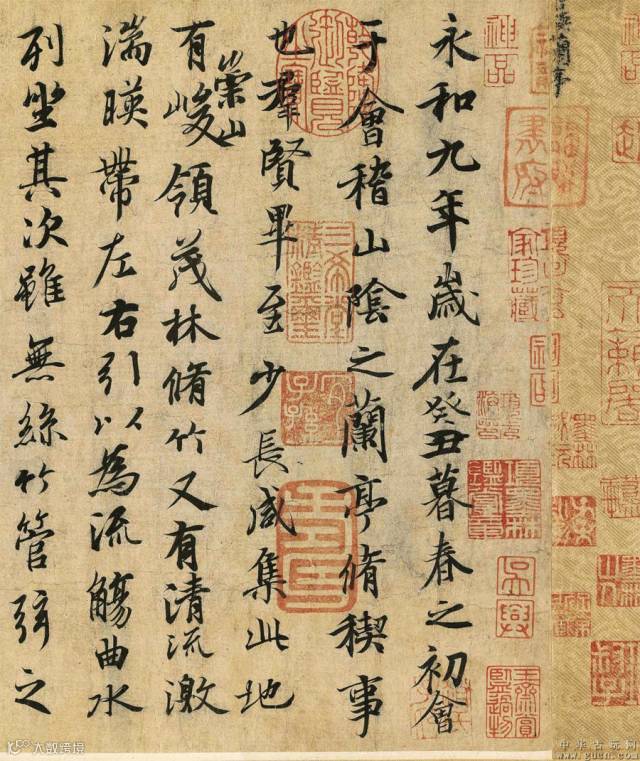 永和九年歲在癸丑暮春之初會
于會稽山陰之蘭亭脩稧事
也羣賢畢至少長咸集此地
有崇山峻領茂林脩竹又有清流激
湍暎帶左右引以為流觴曲水
列坐其次雖無絲竹管弦之
神品
三希堂精鑑璽
宜子孫
大数跨境
中华古玩网
www.gucn.com